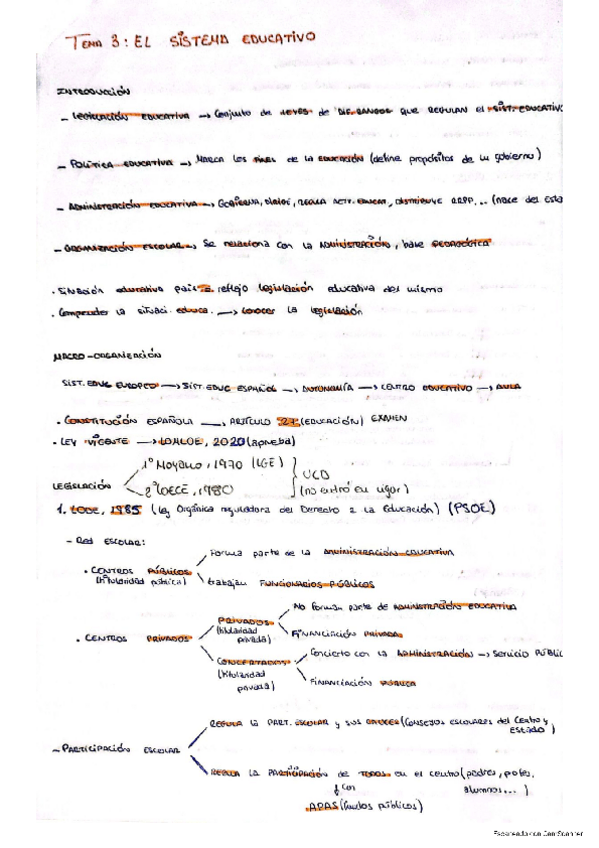 TEMA 3: EL SISTEMA EDUCATIVO
INTRODUCCIÓN
- LEGISLACIÓN EDUCATIVA → Conjunto de LEYES de DIF. RANGOS QUE REGULAN El SIST. EDUCATIVO
- POLÍTICA EDUCATIVA → MARCA LOS FINES de LA EDUCACIÓN (define propósitos de un gobierno)
- ADMINISTRACIÓN EDUCATIVA → GOBIERNA, DIRIGE, REGULA ACTV. EDUCAT., DISTRIBUYE RRPP... (nace del esta
- ORGANIZACIÓN ESCOLAR → Se relaciona con la ADMINISTRACIÓN, base PEDAGÓGICA
. Situación educativa país = reflejo legislación educativa del mismo
. Comprender la situaci. educa. → conocer la legislación
MACRO-ORGANIZACIÓN
SIST. EDUC EUROPEO → SIST. EDUC ESPAÑOL → AUTONOMÍA → CENTRO EDUCATIVO → AULA
. CONSTITUCIÓN ESPAÑOLA → ARTÍCULO 27 (EDUCACIÓN) EXAMEN
. LEY VIGENTE → LOMLOE, 2020 (aprueba)
LEGISLACIÓN
1º Moyano, 1970 (LGE)
2º LOECE, 1980
UCD
(no entró en vigor)
1. LODE, 1985 (Ley Orgánica reguladora del Derecho a la Educación) (PSOE)
- Red ESCOLAR:
. CENTROS PÚBLICOS
(titularidad pública)
Forma parte de la ADMINISTRACIÓN EDUCATIVA
trabajan FUNCIONARIOS PÚBLICOS
. CENTROS PRIVADOS
PRIVADOS
(titularidad privada)
No forman parte de ADMINISTRACIÓN EDUCATIVA
FINANCIACIÓN PRIVADA
CONCERTADOS
(titularidad privada)
Concierto con la ADMINISTRACIÓN → SERVICIO PÚBLIC
FINANCIACIÓN PÚBLICA
- PARTICIPACIÓN ESCOLAR
REGULA LA PART. ESCOLAR y sus (Consejos escolares del Centro y
Estado)
REGULA LA PARTICIPACIÓN de TODOS en el centro (padres, profes,
alumnos...)
con
APAS (fondos públicos)
Escaneado con CamScanner